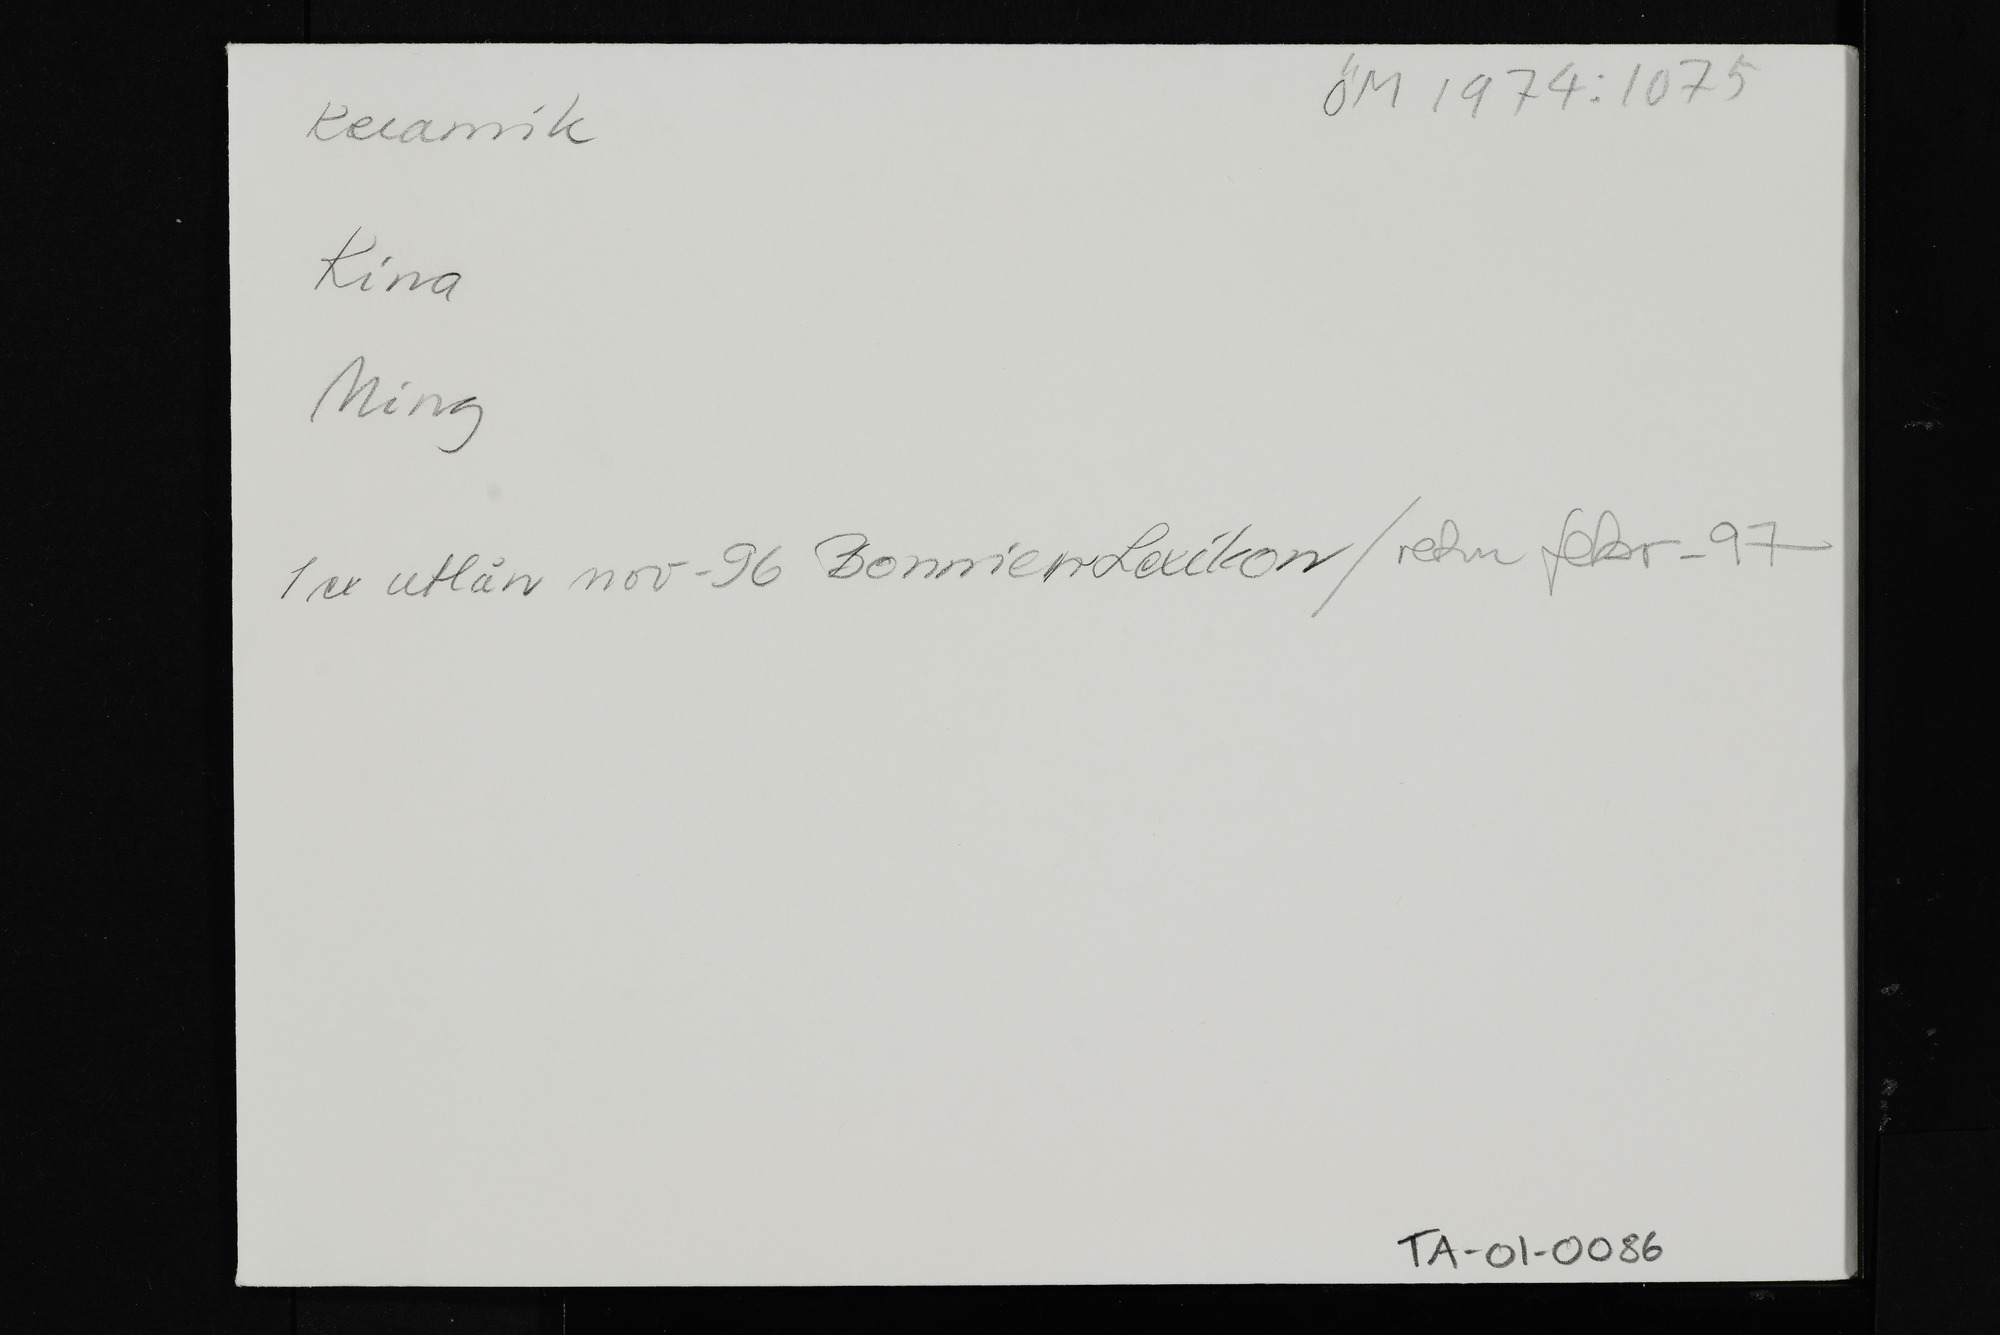 ÖM 1974:1075
Keramik
Kina
Ming
1 ex utlån nov-96 Bonnier Lexikon / retur febr-97
TA-01-0086